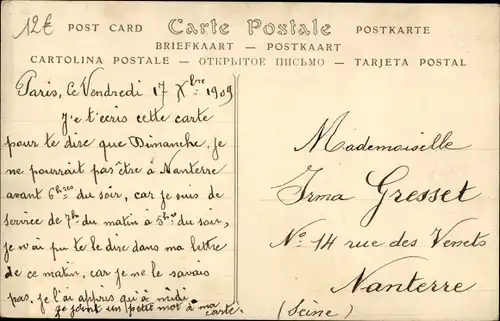 12€
POST CARD Carte Postale POSTKARTE
BRIEFKAART — POSTKAART
CARTOLINA POSTALE — ОТКРЫТОЕ ПИСЬМО — TARJETA POSTAL
Paris, le Vendredi 17 Xbre 1909
Je t'écris cette carte
pour te dire que Dimanche, je
ne pourrait pas être à Nanterre
avant 6hres du soir, car je suis de
service de 7h du matin à 5hres du soir,
je n'ai pu te le dire dans ma lettre
de ce matin, car je ne le savais
pas, je l'ai appris qu'à midi
je joint un petit mot à ma
carte.
Mademoiselle
Irma Gresset
No 14 rue des Venets
Nanterre
(Seine)